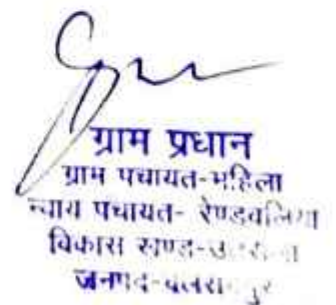 ग्राम प्रधान
ग्राम पचायत-महिला
न्याय पचायत- रेण्डवलिया
विकास खण्ड-उतरौला
जनपद-बलरामपुर